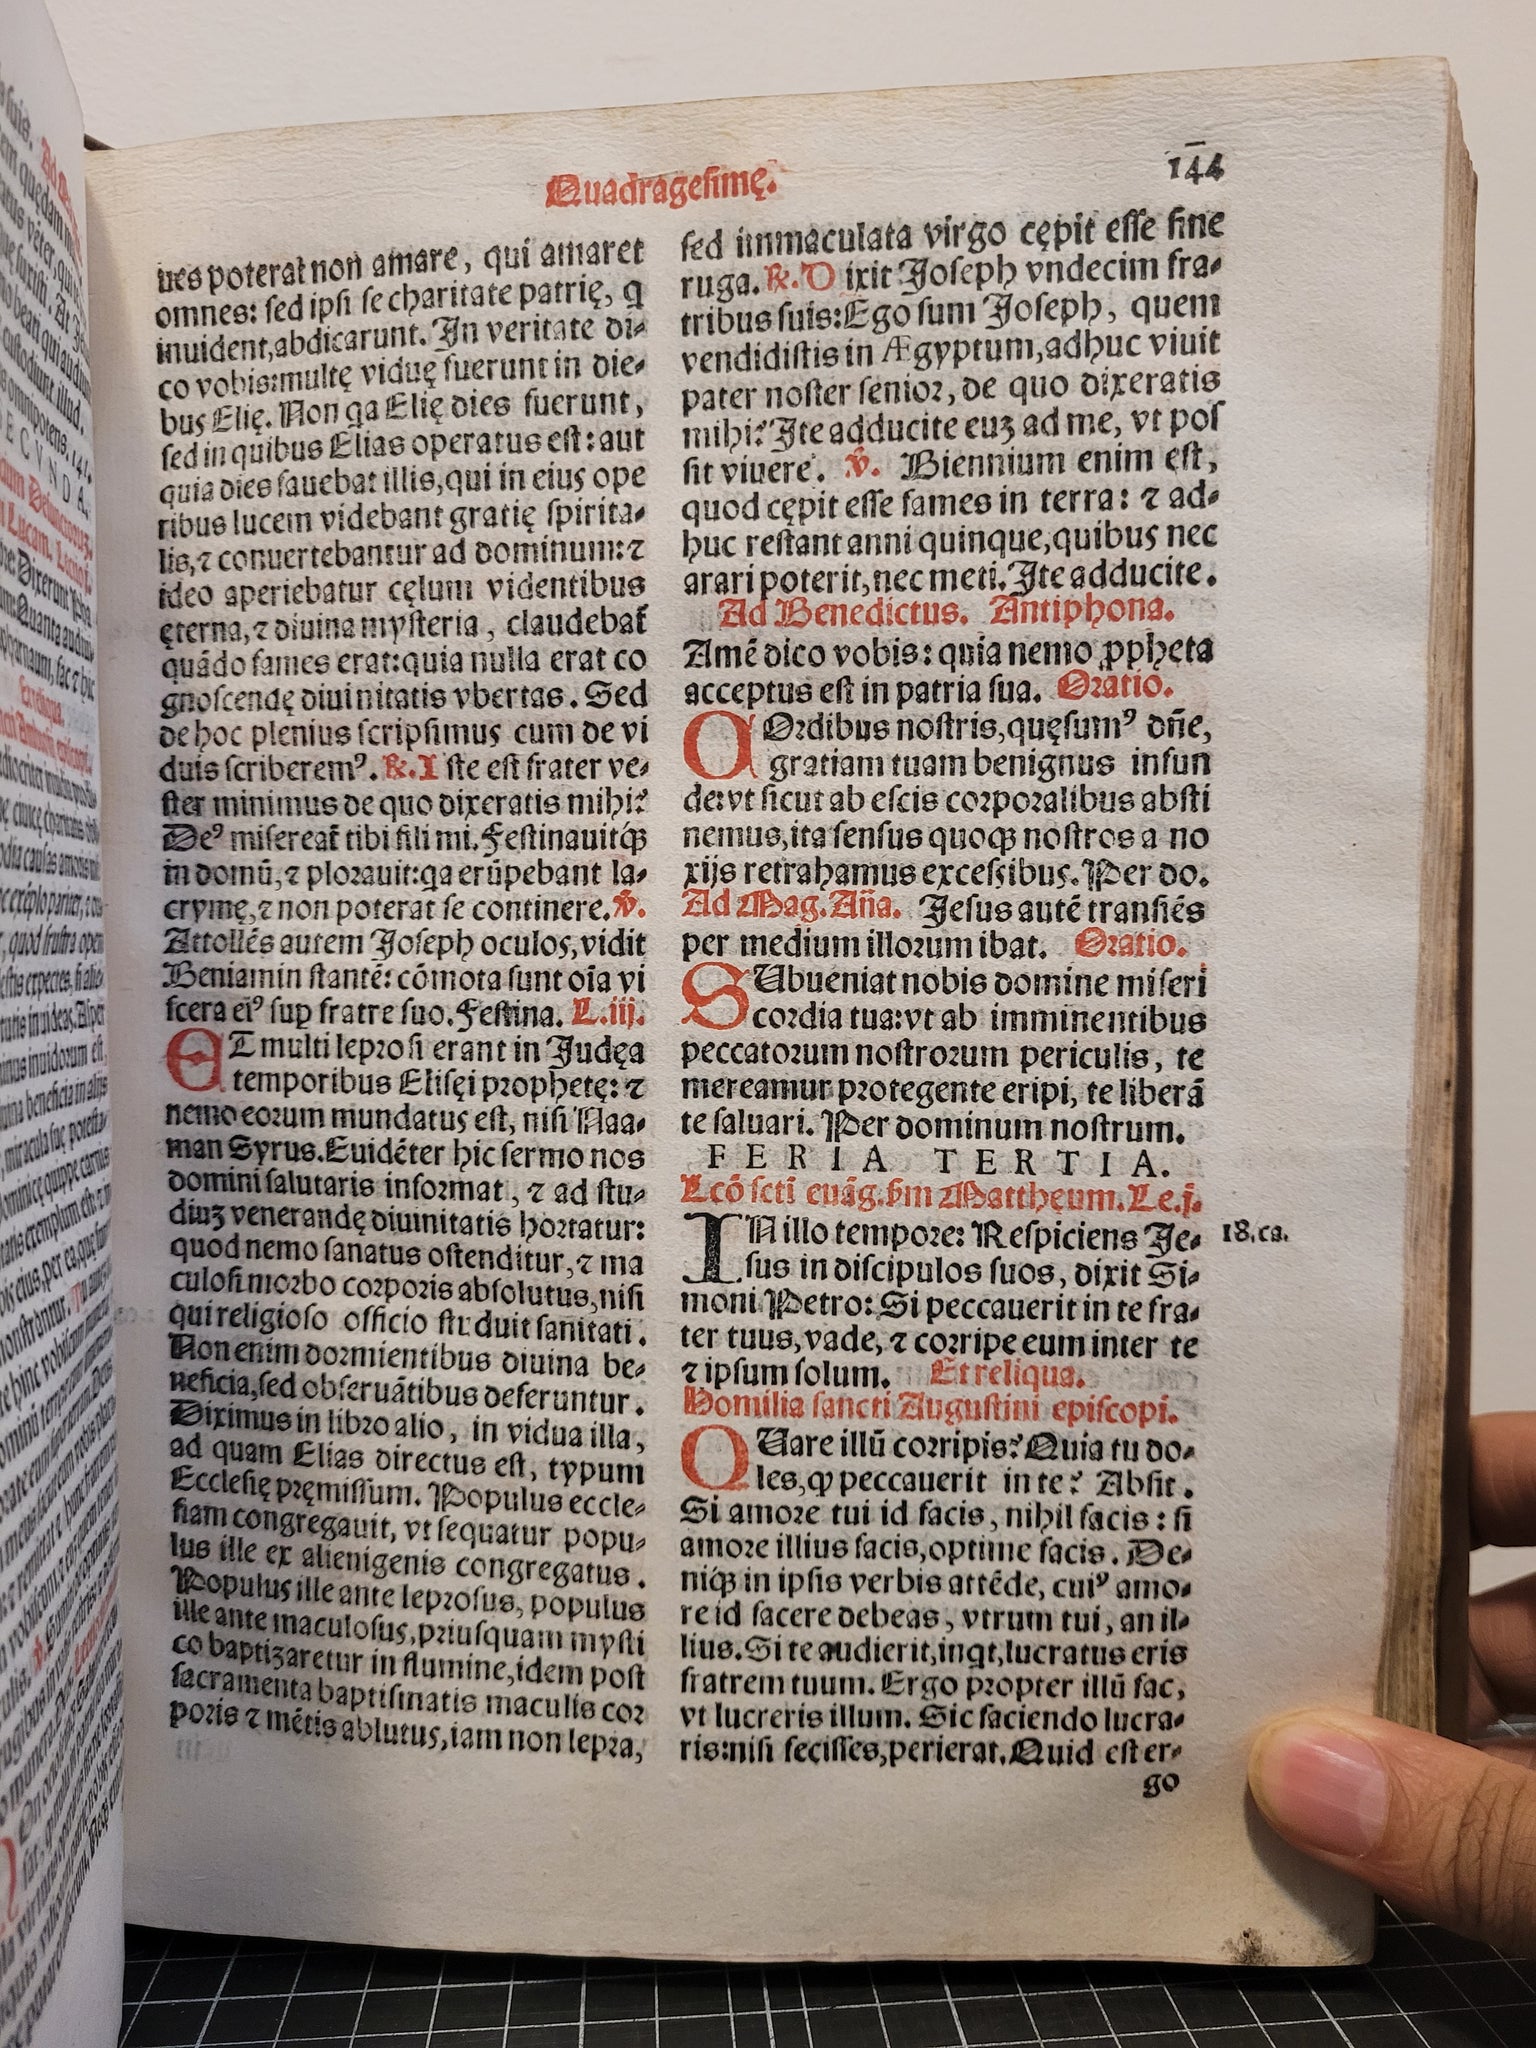 Quadragesimę.
144
ues poterat non amare, qui amaret
omnes: sed ipsi se charitate patrię, q
inuident, abdicarunt. In veritate di-
co vobis: multę viduę fuerunt in die-
bus Elię. Non qa Elię dies fuerunt,
sed in quibus Elias operatus est: aut
quia dies fauebat illis, qui in eius ope
ribus lucem videbant gratię spirita-
lis, ⁊ conuertebantur ad dominum: ⁊
ideo aperiebatur cęlum videntibus
ęterna, ⁊ diuina mysteria, claudebat̃
quãdo fames erat: quia nulla erat co
gnoscendę diuinitatis vbertas. Sed
de hoc plenius scripsimus cum de vi
duis scriberemꝰ. ℟. Iste est frater ve-
ster minimus de quo dixeratis mihi?
Deꝰ misereat̃ tibi fili mi. Festinauitqꝫ
in domũ, ⁊ plorauit: qa erũpebant la-
crymę, ⁊ non poterat se continere. ℣.
Attollẽs autem Joseph oculos, vidit
Beniamin stantẽ: cõmota sunt oĩa vi
scera eiꝰ sup fratre suo. Festina. L.iij.
ET multi leprosi erant in Judęa
temporibus Elisęi prophetę: ⁊
nemo eorum mundatus est, nisi Naa-
man Syrus. Euidẽter hic sermo nos
domini salutaris informat, ⁊ ad stu-
diuꝫ venerandę diuinitatis hortatur:
quod nemo sanatus ostenditur, ⁊ ma
culosi morbo corporis absolutus, nisi
qui religioso officio studuit sanitati.
Non enim dormientibus diuina be-
neficia, sed obseruãtibus deferuntur.
Diximus in libro alio, in vidua illa,
ad quam Elias directus est, typum
Ecclesię pręmissum. Populus eccle-
siam congregauit, vt sequatur popu-
lus ille ex alienigenis congregatus.
Populus ille ante leprosus, populus
ille ante maculosus, priusquam mysti
co baptizaretur in flumine, idem post
sacramenta baptismatis maculis cor
poris ⁊ mẽtis ablutus, iam non lepra,
sed immaculata virgo cępit esse sine
ruga. ℟. Dixit Joseph vndecim fra-
tribus suis: Ego sum Joseph, quem
vendidistis in Ægyptum, adhuc viuit
pater noster senior, de quo dixeratis
mihi? Ite adducite euꝫ ad me, vt pos
sit viuere. ℣. Biennium enim est,
quod cępit esse fames in terra: ⁊ ad-
huc restant anni quinque, quibus nec
arari poterit, nec meti. Ite adducite.
Ad Benedictus. Antiphona.
Amẽ dico vobis: quia nemo ꝓphęta
acceptus est in patria sua. Oratio.
COrdibus nostris, quęsumꝰ dñe,
gratiam tuam benignus infun
de: vt sicut ab escis corporalibus absti
nemus, ita sensus quoqꝫ nostros a no
xijs retrahamus excessibus. Per do.
Ad Mag. Aña. Jesus autẽ transiẽs
per medium illorum ibat. Oratio.
SUbueniat nobis domine miseri
cordia tua: vt ab imminentibus
peccatorum nostrorum periculis, te
mereamur protegente eripi, te liberã
te saluari. Per dominum nostrum.
FERIA TERTIA.
Lcõ scti euãg. scḋm Mattheum. Le.j.
IN illo tempore: Respiciens Je-
sus in discipulos suos, dixit Si-
moni Petro: Si peccauerit in te fra-
ter tuus, vade, ⁊ corripe eum inter te
⁊ ipsum solum. Et reliqua.
Homilia sancti Augustini episcopi.
QUare illũ corripis? Quia tu do-
les, ꝙ peccauerit in te? Absit.
Si amore tui id facis, nihil facis: si
amore illius facis, optime facis. De-
niqꝫ in ipsis verbis attẽde, cuiꝰ amo-
re id facere debeas, vtrum tui, an il-
lius. Si te audierit, inqt, lucratus eris
fratrem tuum. Ergo propter illũ fac,
vt lucreris illum. Sic faciendo lucra-
ris: nisi fecisses, perierat. Quid est er-
go
18. ca.